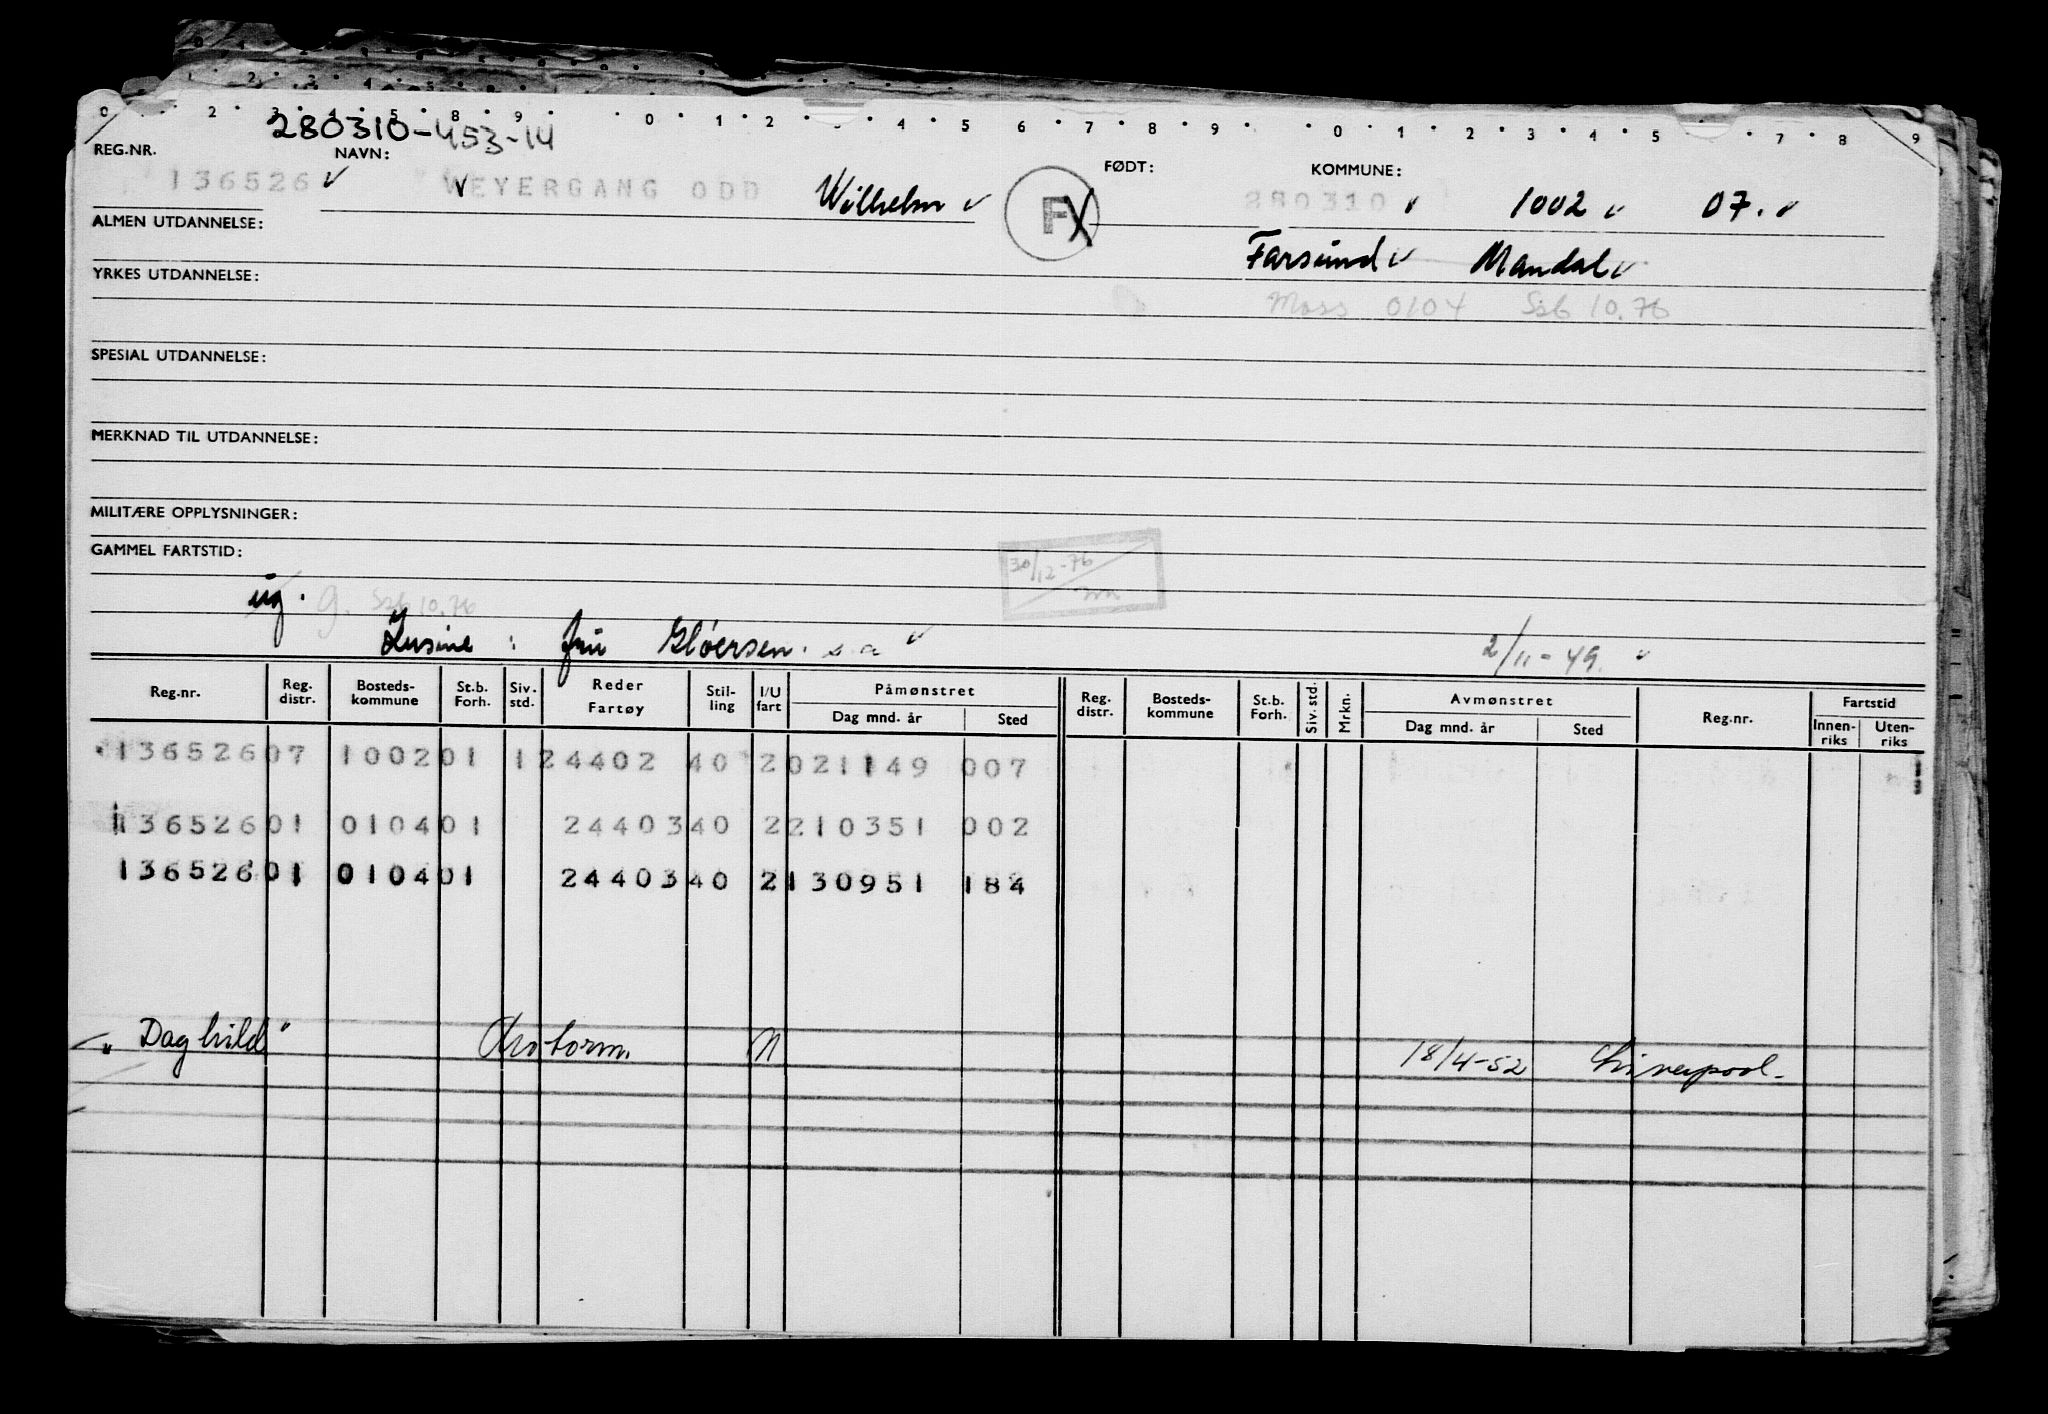 0 . 2 . 3 . 4 . 5 . 8 . 9 . . 0 . 1 . 2 . 3 . 4 . 5 6 . 7 . 8 . 9 . . 0 . 1 . 2 . 3 . 4 . 5 . 7 . 8 . 9
280310-453-14
REG.NR. NAVN: FØDT: KOMMUNE:
136526 ✓ WEYERGANG ODD Wilhelm ✓ F X 280310 ✓ 1002 ✓ 07. ✓
ALMEN UTDANNELSE:
Farsund ✓ Mandal ✓
YRKES UTDANNELSE:
Moss 0104 Ssb 10.76
SPESIAL UTDANNELSE:
MERKNAD TIL UTDANNELSE:
MILITÆRE OPPLYSNINGER:
GAMMEL FARTSTID:
30/12-76
ug. g. Ssb 10.76
: fru Gløersen. s a ✓ 2/11-49. ✓
Reg.nr. Reg. distr. Bosteds-kommune St.b. Forh. Siv. std. Reder Fartøy Stil-ling I/U fart Påmønstret Dag mnd. år Sted Reg. distr. Bosteds-kommune St.b. Forh. Siv. std. Mrkn. Avmønstret Dag mnd. år Sted Reg.nr. Fartstid Innen-riks Uten-riks
136526 07 1002 01 1 24402 40 2 021149 007
136526 01 0104 01 24403 40 2 210351 002
136526 01 0104 01 24403 40 2 130951 184
"Daghild" Motorm. N 18/4-52 Liverpool-